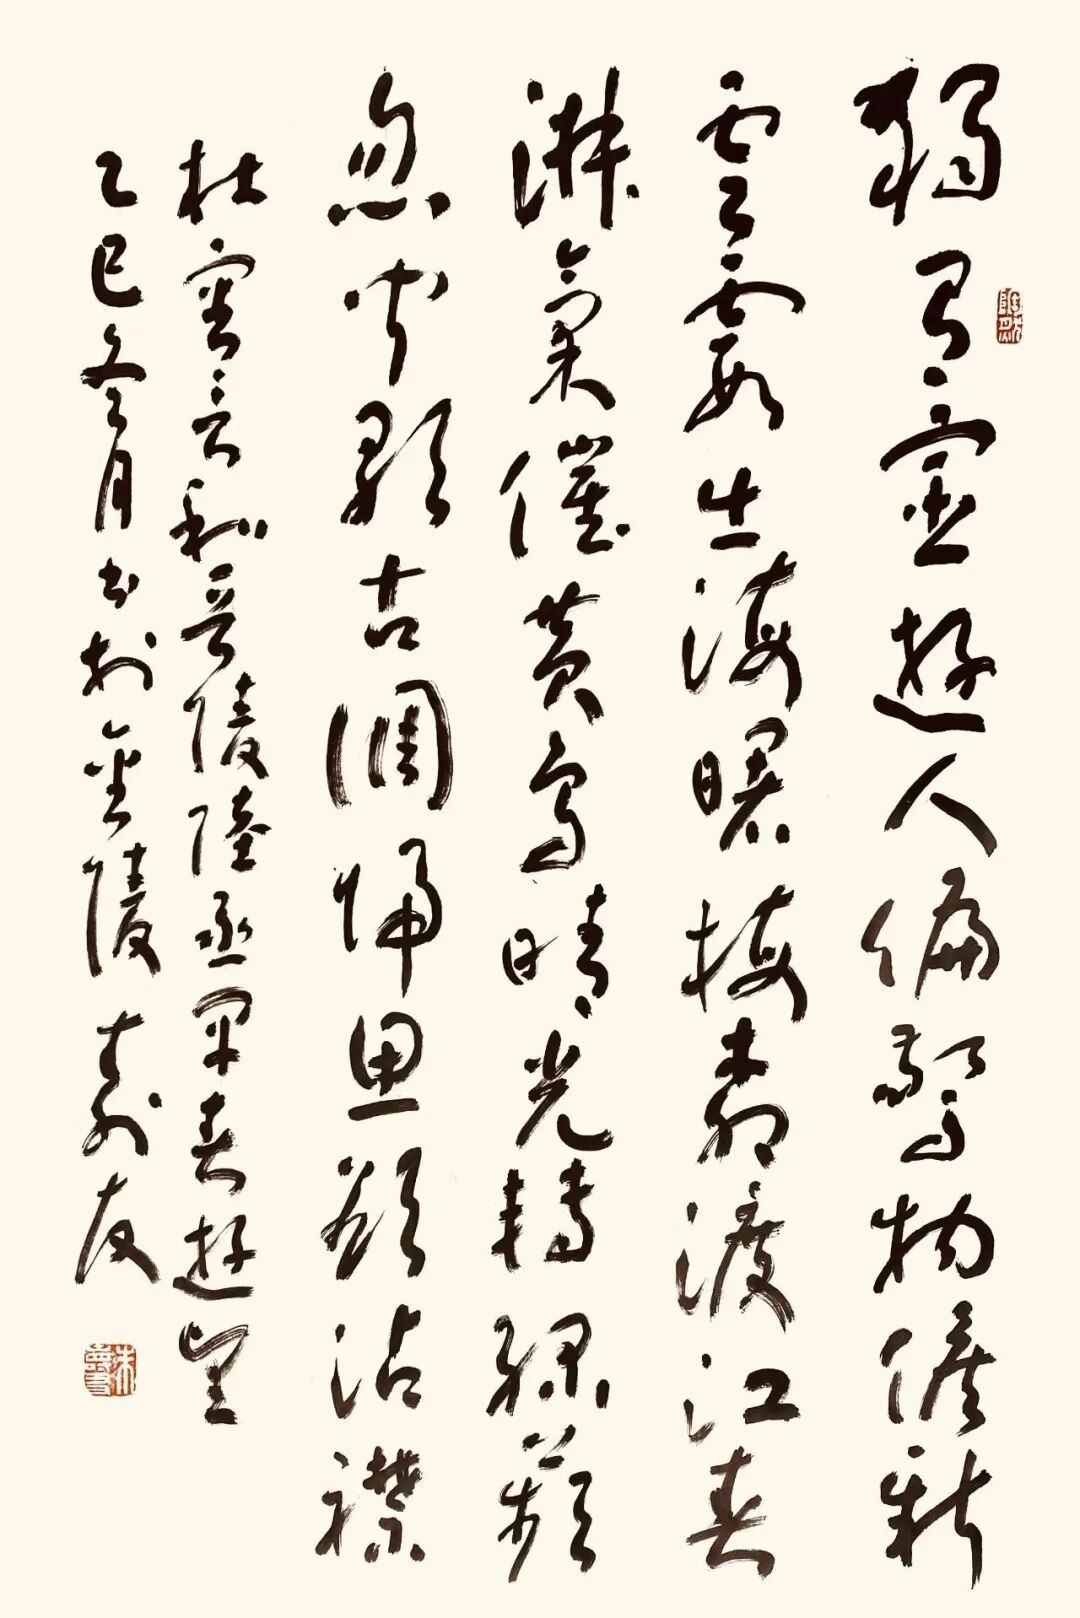 獨有宦遊人偏驚物候新
雲霞出海曙梅柳渡江春
淑氣催黃鳥晴光轉綠蘋
忽聞歌古調歸思欲沾襟
杜審言和晉陵陸丞早春遊望
乙巳冬月書於金陵壽友